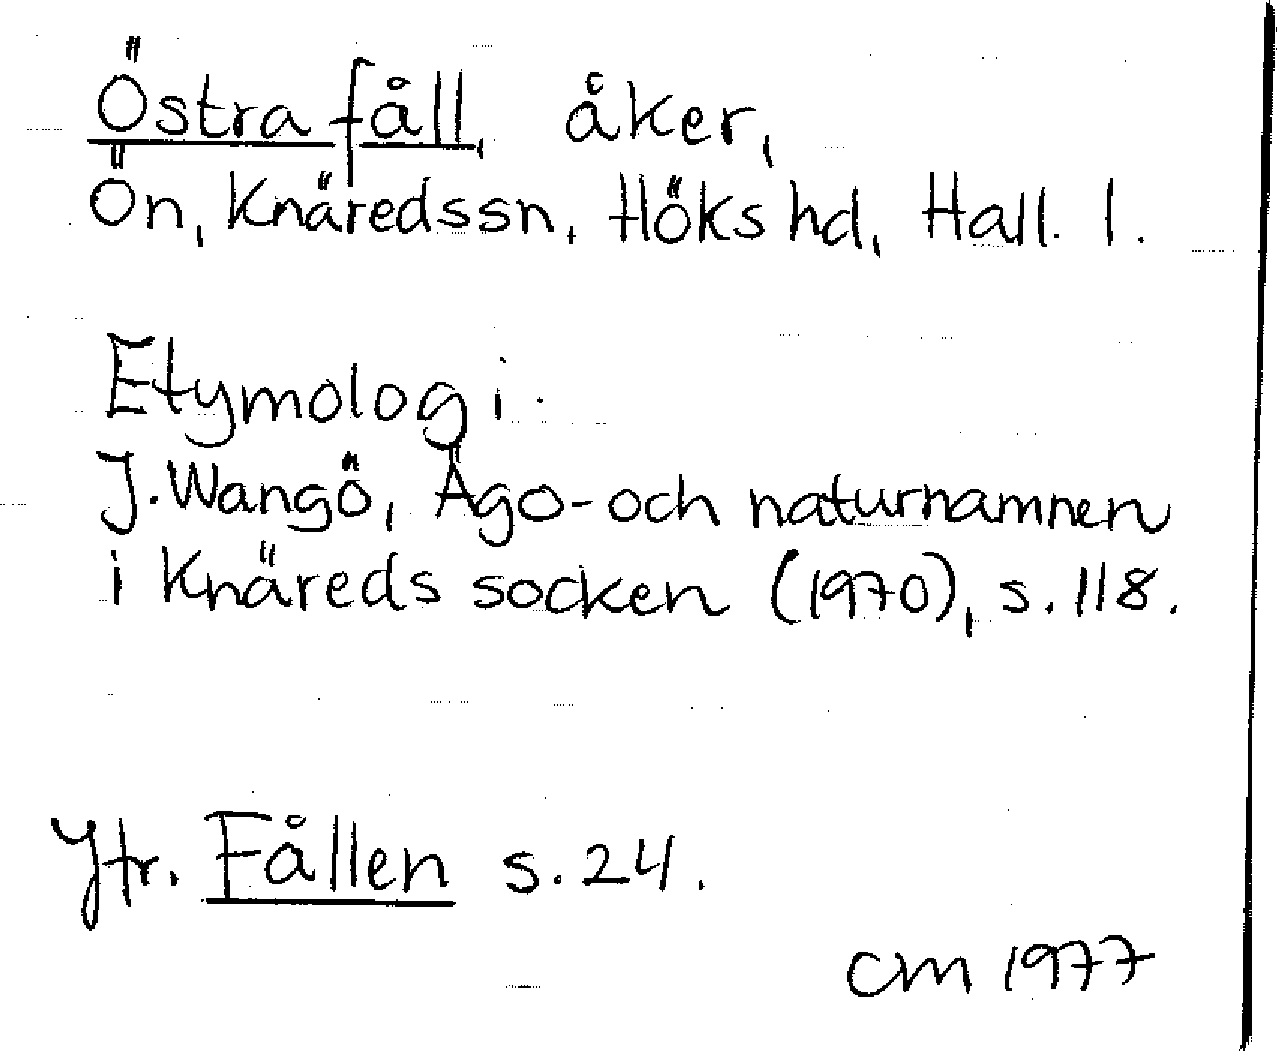 Östra fåll, åker,
Ön, Knäredssn, Höks hd, Hall. l.
Etymologi.
J. Wangö, Ägo- och naturnamnen
i Knäreds socken (1970), s. 118.
Ytr. Fållen s. 24.
CM 1977